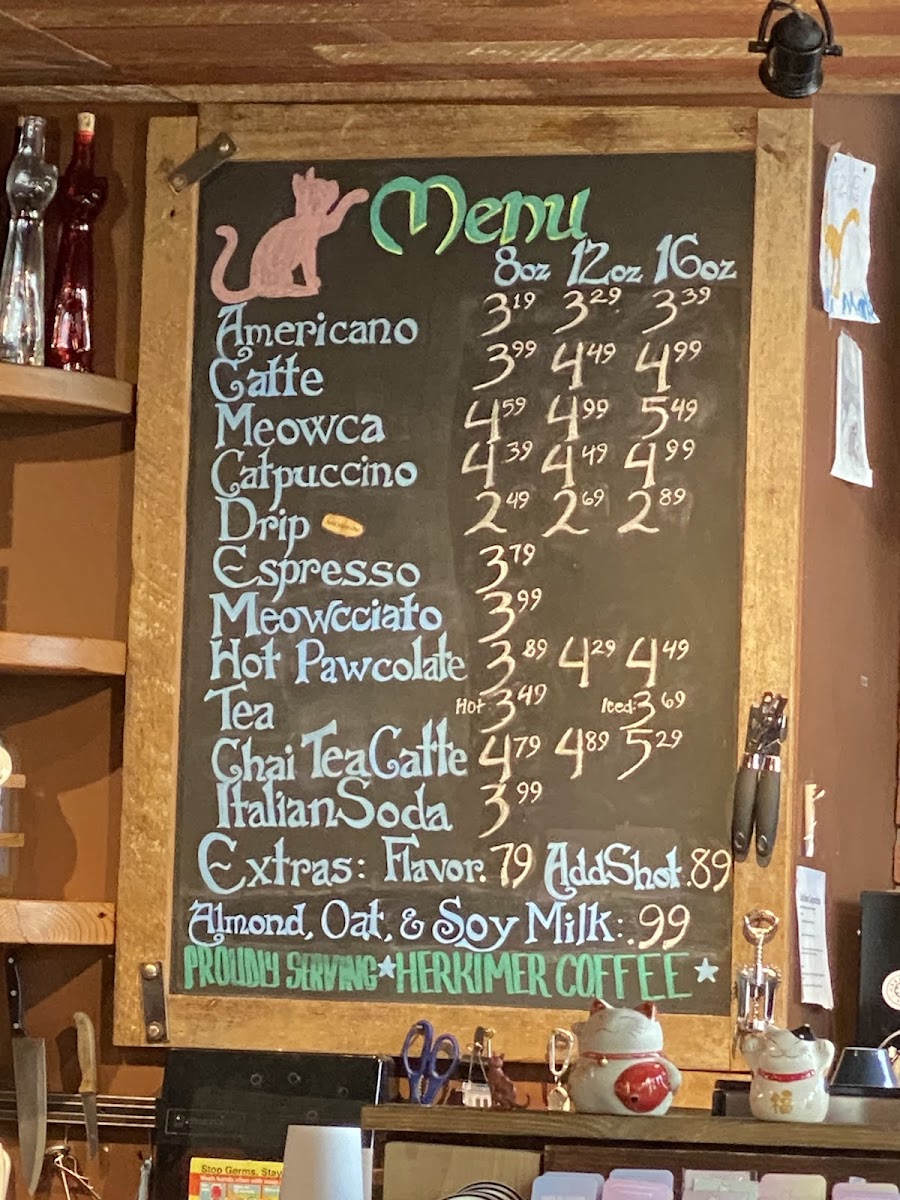 Menu
8oz 12oz 16oz
Americano 3.19 3.29 3.39
Catte 3.99 4.49 4.99
Meowca 4.59 4.99 5.49
Catpuccino 4.39 4.49 4.99
Drip 2.49 2.69 2.89
Espresso 3.79
Meowcciato 3.99
Hot Pawcolate 3.89 4.29 4.49
Tea Hot: 3.49 Iced: 3.69
Chai Tea Catte 4.79 4.89 5.29
Italian Soda 3.99
Extras: Flavor .79 Add Shot .89
Almond, Oat, & Soy Milk: .99
PROUDLY SERVING HERKIMER COFFEE
Stop Germs, Stay
福